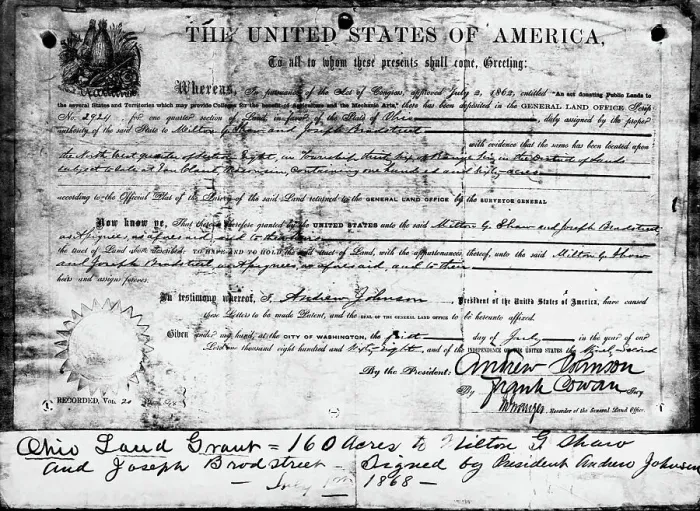 THE UNITED STATES OF AMERICA,
To all to whom these presents shall come, Greeting:
Whereas, In pursuance of the Act of Congress, approved July 2, 1862, entitled "An act donating Public Lands to
the several States and Territories which may provide Colleges for the benefit of Agriculture and the Mechanic Arts," there has been deposited in the GENERAL LAND OFFICE Scrip
No. 2924, for one quarter section of Land in favor of the State of Ohio, duly assigned by the proper
authority of the said State to Milton G. Shaw and Joseph Bradstreet
with evidence that the same has been located upon
the North West quarter of Section Eight, in Township in the District of Lands
subject to sale at Wisconsin, containing one hundred and sixty acres
according to the Official Plat of the Survey of the said Land returned to the GENERAL LAND OFFICE by the SURVEYOR GENERAL
Now know ye, That there is therefore granted by the UNITED STATES unto the said Milton G. Shaw and Joseph Bradstreet
as Assignees as aforesaid, and to their heirs
the tract of Land above described: TO HAVE AND TO HOLD the said tract of Land, with the appurtenances thereof, unto the said Milton G. Shaw
and Joseph Bradstreet as Assignees as aforesaid, and to their
heirs and assigns forever.
In testimony whereof, I, Andrew Johnson, President of the United States of America, have caused
these Letters to be made Patent, and the SEAL OF THE GENERAL LAND OFFICE to be hereunto affixed.
Given under my hand, at the CITY OF WASHINGTON, the first day of July in the year of our
Lord one thousand eight hundred and sixty eight, and of the INDEPENDENCE OF THE UNITED STATES the Ninety second
By the President: Andrew Johnson
By Frank Cowan Sec'y
Recorder of the General Land Office.
RECORDED, Vol. 20
Ohio Land Grant = 160 Acres to Milton G Shaw
and Joseph Brodstreet - Signed by President Andrew Johnson
- July 1st 1868 -